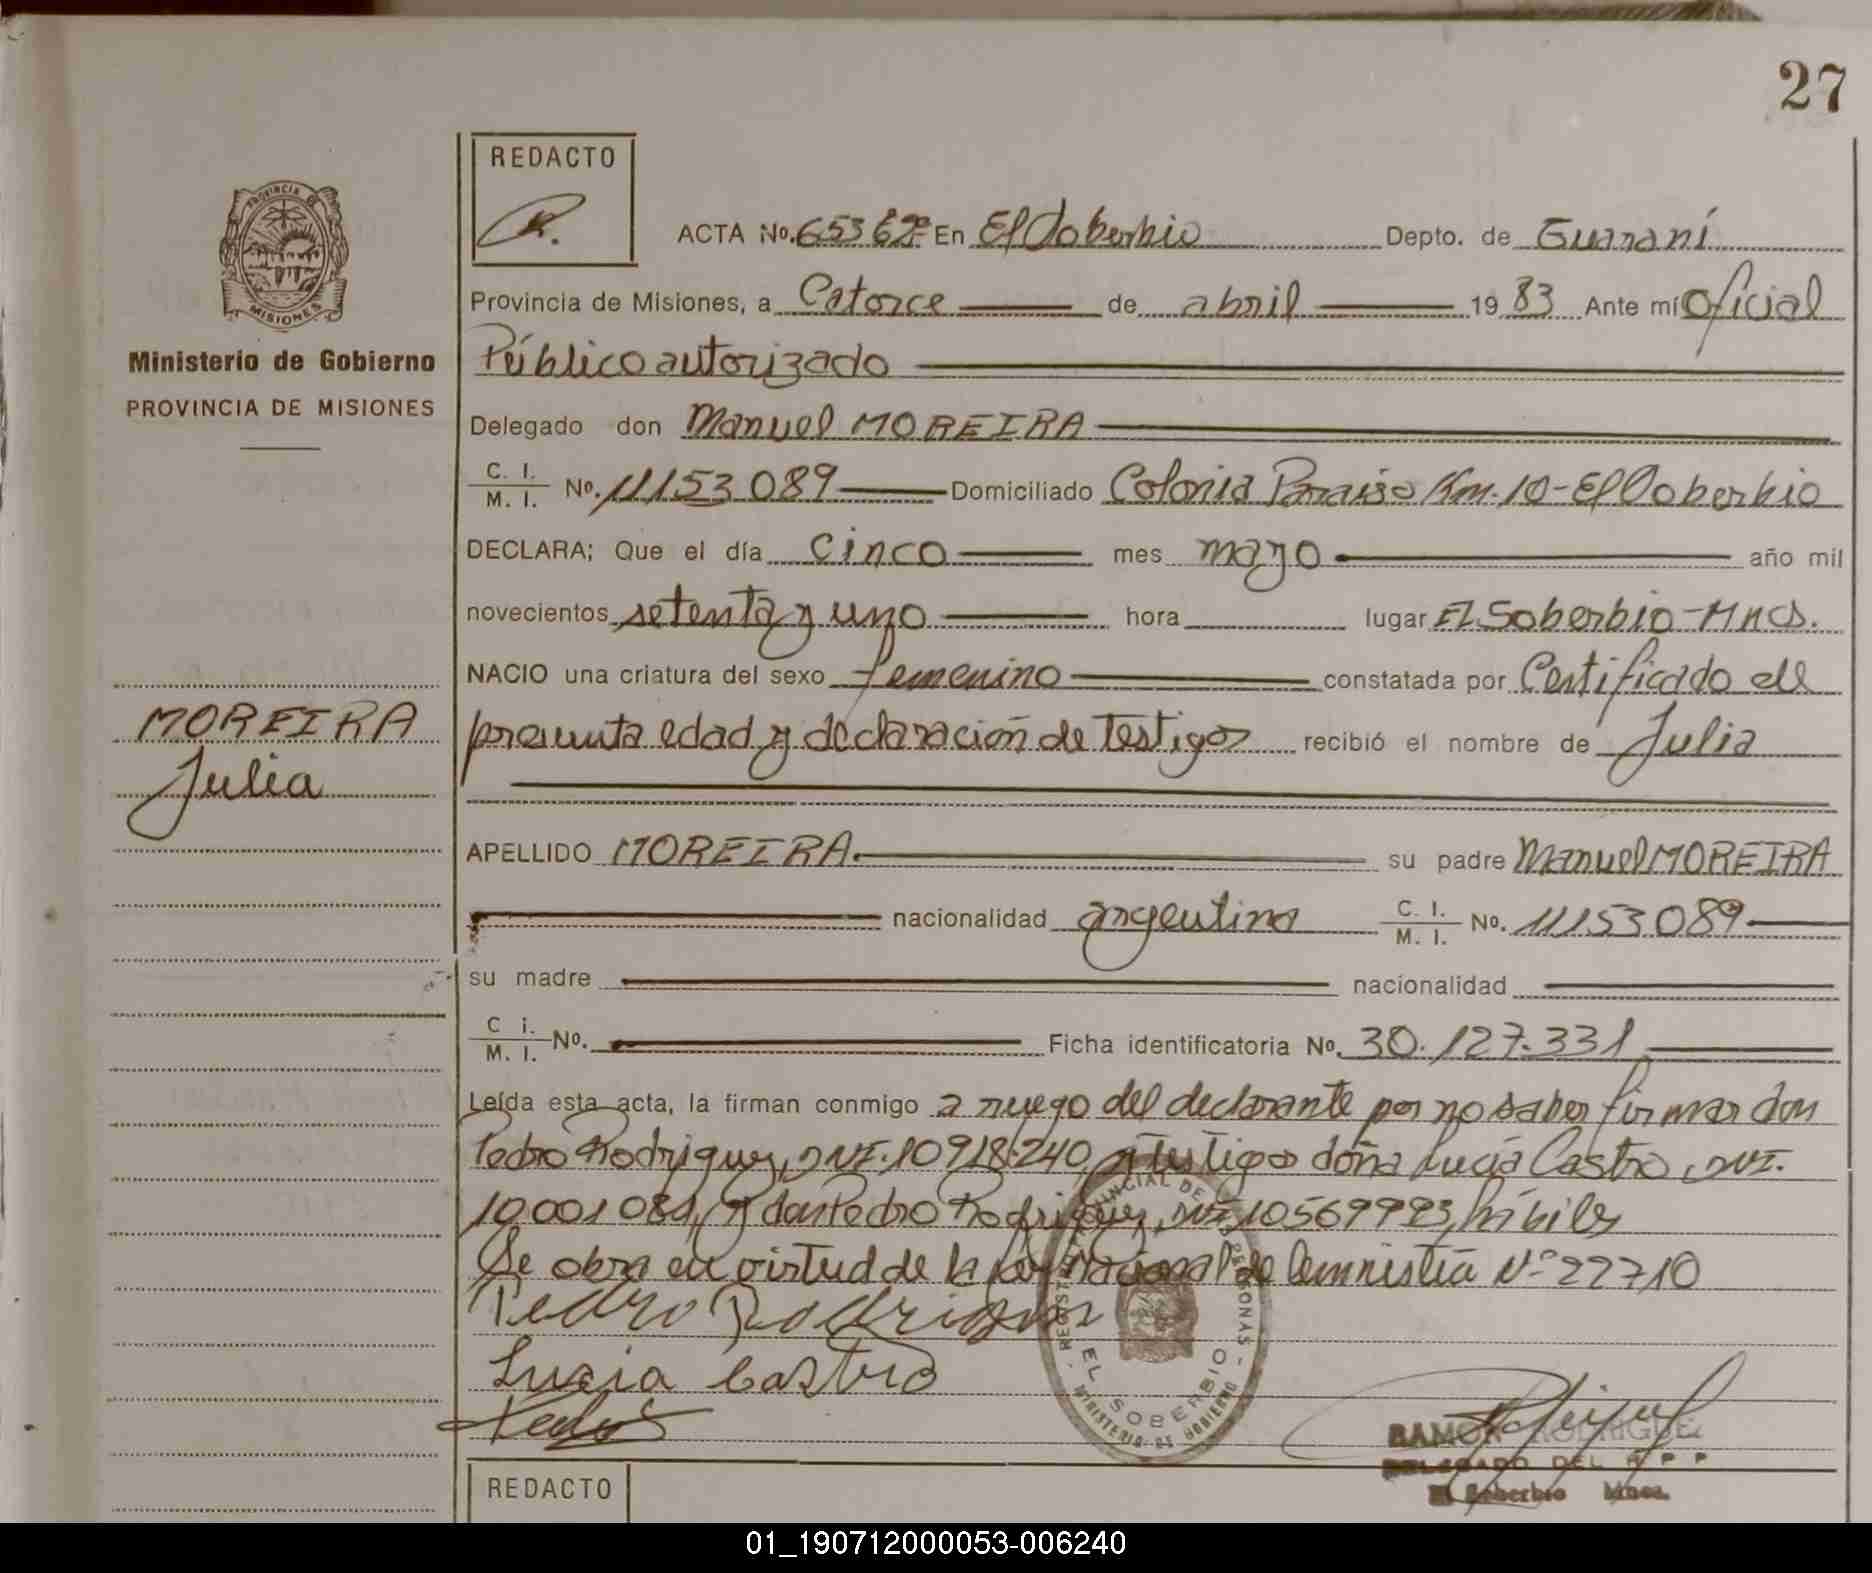 27
REDACTO
ACTA No. 65362º En El Soberbio Depto. de Guaraní
Provincia de Misiones, a Catorce de abril 1983 Ante mí Oficial
Público autorizado
Ministerio de Gobierno
PROVINCIA DE MISIONES
Delegado don Manuel MOREIRA
C. I. M. I. No. 11153089 Domiciliado Colonia Paraiso Km. 10-El Soberbio
DECLARA; Que el día cinco mes mayo año mil
novecientos setenta y uno hora lugar El Soberbio-Mnes.
NACIO una criatura del sexo femenino constatada por Certificado de
MOREIRA
Julia
presunta edad y declaración de Testigos recibió el nombre de Julia
APELLIDO MOREIRA. su padre Manuel MOREIRA
nacionalidad argentina C. I. M. I. No. 11153089
su madre nacionalidad
C i. M. I. No. Ficha identificatoria No. 30.127.331
Leída esta acta, la firman conmigo a ruego del declarante por no saber firmar don
Pedro Rodriguez, DNI. 10918.240, testigos doña Lucía Castro, DNI.
10001081, y don Pedro Rodriguez, DNI 10569993, hábiles
Se obra en virtud de la Ley Nacional de Amnistía Nº 22710
Pedro Rodriguez
Lucia Castro
Pedro
REGISTRO PROVINCIAL DE LAS PERSONAS
EL SOBERBIO
MINISTERIO DE GOBIERNO
RAMON RODRIGUEZ
DELEGADO DEL R P P
El Soberbio Mnes.
REDACTO
01_190712000053-006240